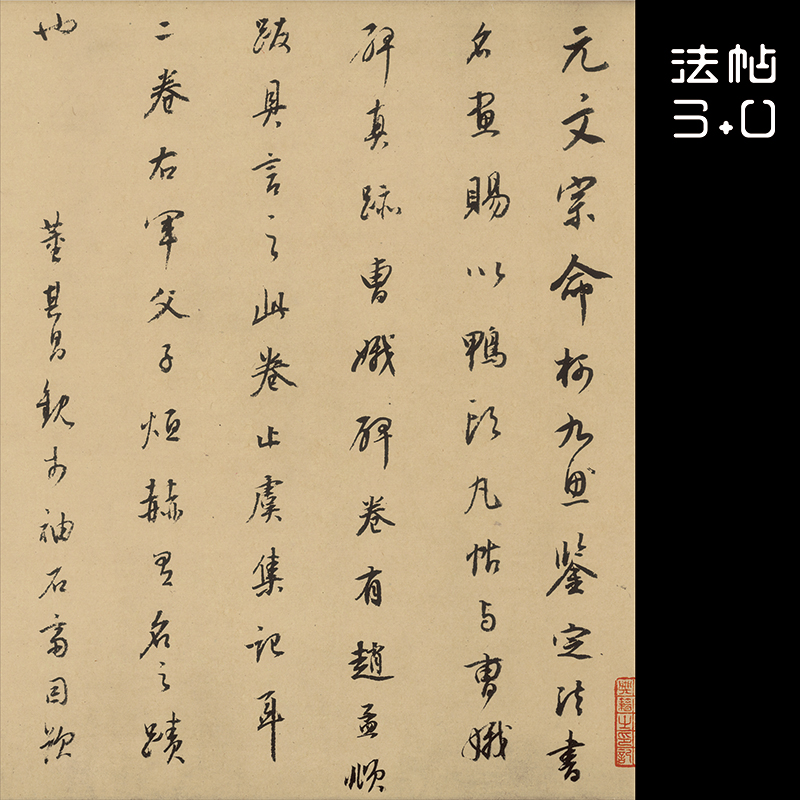 法帖
3.0
元文宗命柯九思鑒定法書
名畫賜以鴨頭丸帖与曹娥
碑真跡曹娥碑卷有趙孟頫
跋具言之此卷止虞集記耳
二卷右軍父子烜赫名之蹟
也
董其昌觀於袖石齋因題